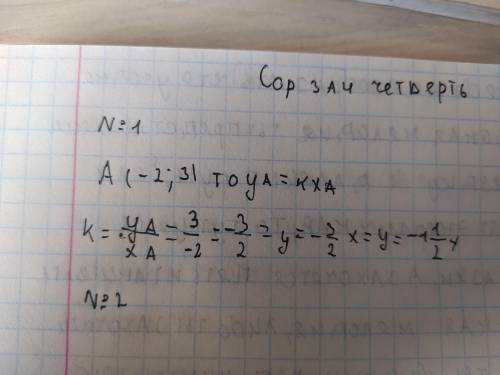 Сор за 4 четверть
№1
A (-2; 3) то yA = кxA
K = yA/xA = 3/-2 = -3/2 = y = -3/2 x = y = -1 1/2 x
№2